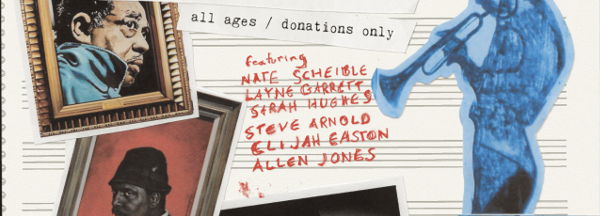 all ages / donations only
featuring
NATE SCHEIBLE
LAYNE GARRETT
SARAH HUGHES
STEVE ARNOLD
ELIJAH EASTON
ALLEN JONES